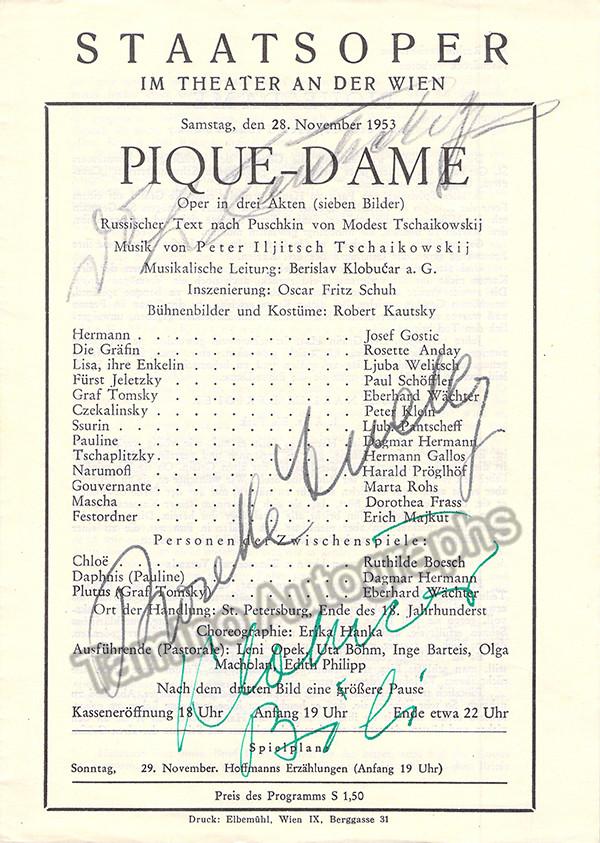 STAATSOPER
IM THEATER AN DER WIEN
Samstag, den 28. November 1953
PIQUE-DAME
Oper in drei Akten (sieben Bilder)
Russischer Text nach Puschkin von Modest Tschaikowskij
Musik von Peter Iljitsch Tschaikowskij
Musikalische Leitung: Berislav Klobučar a. G.
Inszenierung: Oscar Fritz Schuh
Bühnenbilder und Kostüme: Robert Kautsky
Hermann . . . . . . . . . . . Josef Gostic
Die Gräfin . . . . . . . . . . . Rosette Anday
Lisa, ihre Enkelin . . . . . . . . . . . Ljuba Welitsch
Fürst Jeletzky . . . . . . . . . . . Paul Schöffler
Graf Tomsky . . . . . . . . . . . Eberhard Wächter
Czekalinsky . . . . . . . . . . . Peter Klein
Ssurin . . . . . . . . . . . Ljub. Pantscheff
Pauline . . . . . . . . . . . Dagmar Hermann
Tschaplitzky . . . . . . . . . . . Hermann Gallos
Narumoff . . . . . . . . . . . Harald Pröglhöf
Gouvernante . . . . . . . . . . . Marta Rohs
Mascha . . . . . . . . . . . Dorothea Frass
Festordner . . . . . . . . . . . Erich Majkut
Personen der Zwischenspiele:
Chloë . . . . . . . . . . . Ruthilde Boesch
Daphnis (Pauline) . . . . . . . . . . . Dagmar Hermann
Plutus (Graf Tomsky) . . . . . . . . . . . Eberhard Wächter
Ort der Handlung: St. Petersburg, Ende des 18. Jahrhunderst
Choreographie: Erika Hanka
Ausführende (Pastorale): Leni Opek, Uta Böhm, Inge Barteis, Olga
Macholan, Edith Philipp
Nach dem dritten Bild eine größere Pause
Kasseneröffnung 18 Uhr Anfang 19 Uhr Ende etwa 22 Uhr
Spielplan
Sonntag, 29. November. Hoffmanns Erzählungen (Anfang 19 Uhr)
Preis des Programms S 1,50
Druck: Elbemühl, Wien IX, Berggasse 31
Rosette
Tamino Autographs